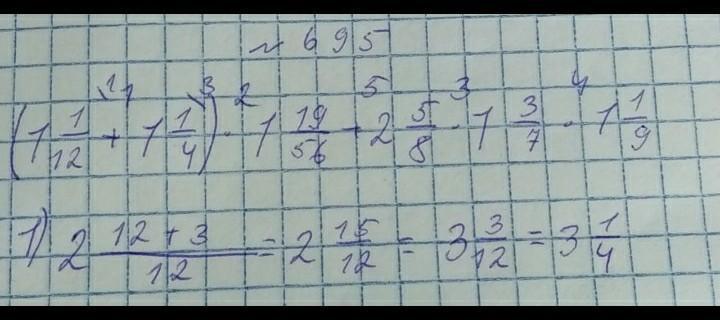 ~ 695
(1 1/12 + 1 1/4) · 1 19/56 + 2 5/8 · 1 3/7 · 1 1/9
1) 2 (12 + 3)/12 = 2 15/12 = 3 3/12 = 3 1/4